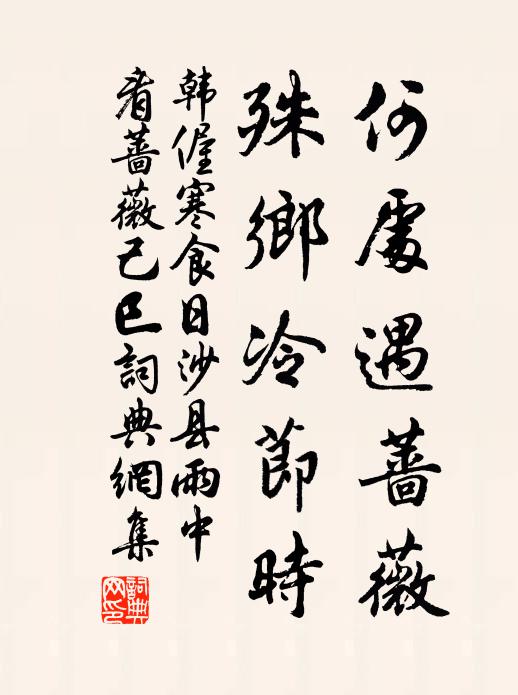 何處遇薔薇
殊鄉冷節時
韩偓寒食日沙县雨中
看薔薇己巳詞典網集
詞典網印